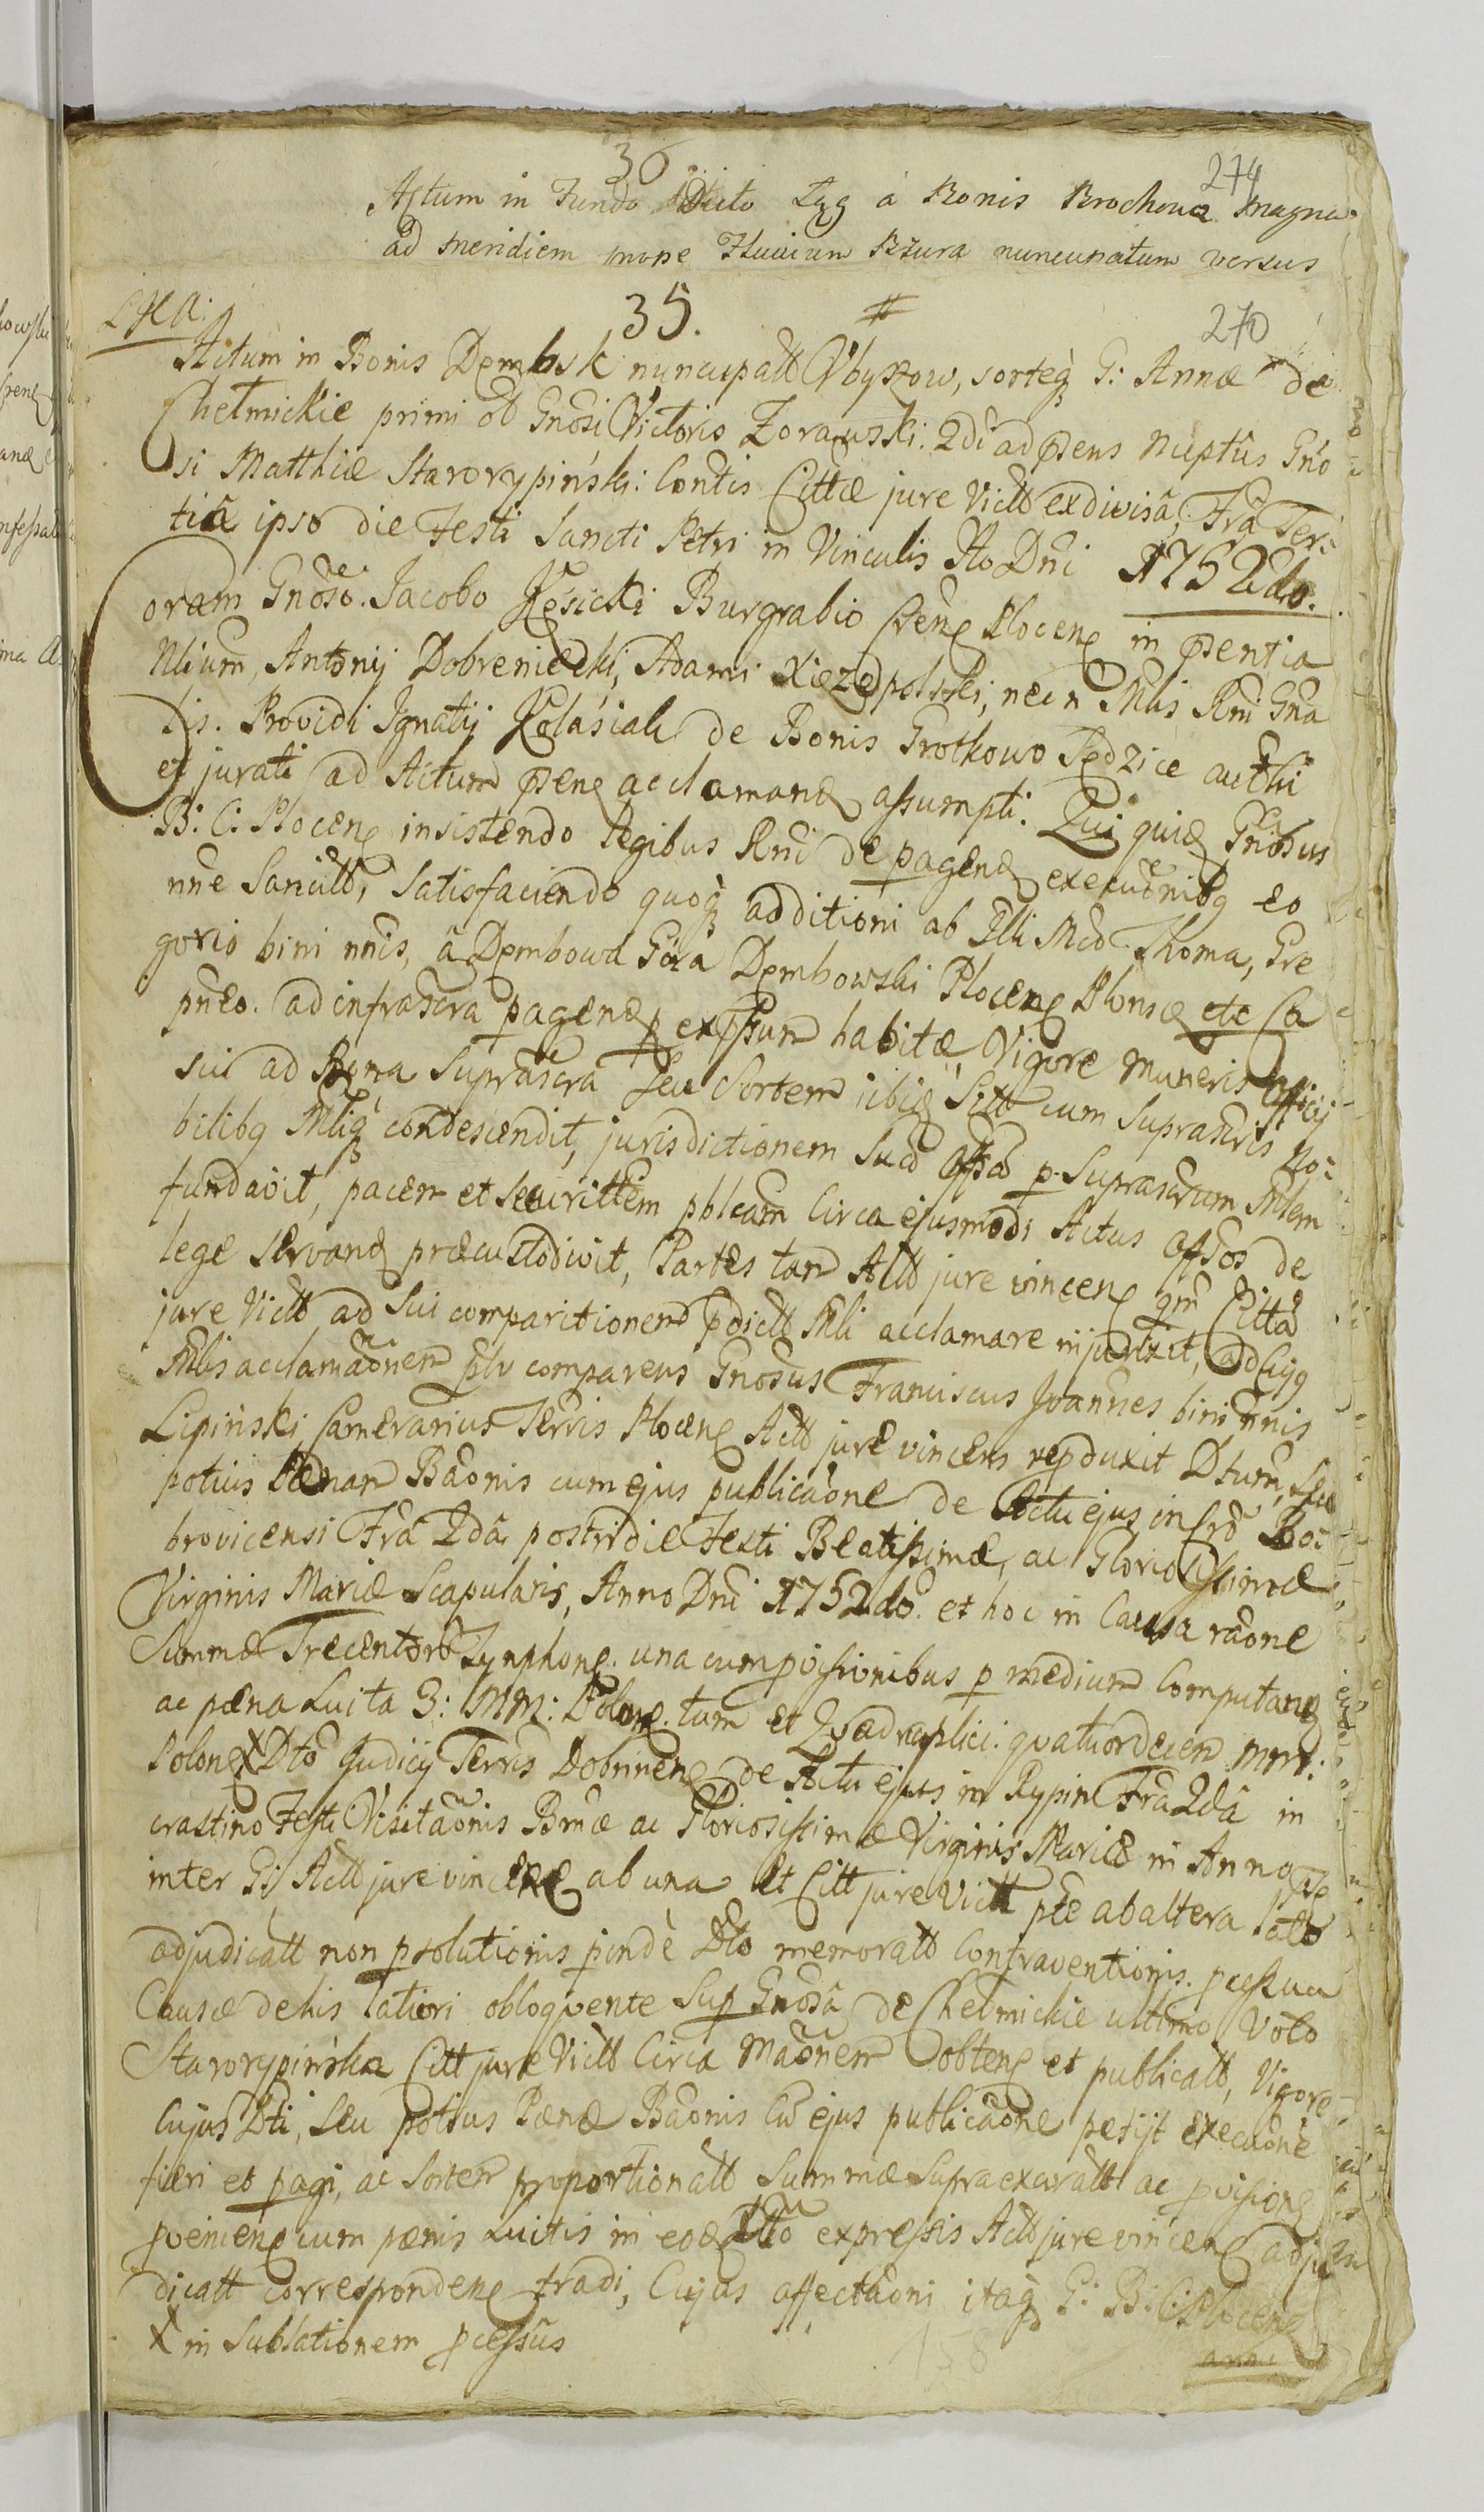 36
274
Actum in Fundo Dicto Łąg a Bonis Brochowa Magna
ad Meridiem prope Fluvium Bzura nuncupatum versus
35.
270
Actum in Bonis Dembsk nuncupatt Ubyszow, sorteq G: Annæ de
Chełmickie primi ob Gnosi Victoris Zorawski: 2di ad psens nuptûs Gno
si Matthiæ Starorypiński: Contis Cittæ jure victt ex divisa, Fra Ter=
tiâ ipso die Festi Sancti Petri in Vinculis Ao Dni 1752do.
Coram Gnoso. Jacobo Kęsicki Burgrabio Cren Plocen in psentia
Nlium, Antonij Dobrenieÿcki, Adami Xięzopolski, nec n Mlis Rni Gna
lis. Providi Ignatij Kołasiak de Bonis Grotkowo Pędzice aucthi
et jurati ad Actum psen acclamand assumpti. Qui quid Gnosus
B: C: Plocen insistendo legibus Rni de pagend execuonibg eo
nne Sancitt, Satisfaciendo quoq additioni ab Illi Mco Thoma, Gre
gorio bini nnis, â Dembowa Góra Dembowski Plocen Plonsc etc Ca
pneo. ad infrascra pagend p expssum habitæ, Vigore muneris Officij
sui ad Bona Suprascra seu Sortem ibiq Sitt cum Suprascris No=
bilibg Mliq condescendit, jurisdictionem Suâ Offsâ p Suprascrum Mlem
fundavit, pacem et securittem pblcam circa ejusmodi Actus Offsos de
lege servand præcustodivit, Partes tam Actt jure vincen qm Cittâ
jure Victt ad sui comparitionem pdictt Mli acclamare injunxit, ad Cujg
Mlis acclamaonem plr comparens Gnosus Franciscus Joannes bini nnis
Lipiński Camerarius Terris Plocen Actt jure vincens repduxit Dtum, seu
potius Pænam Baonis cum ejus publicaone de Actu ejus in Cro Bo=
brovicensi Fra 2dâ postridie Festi Beatissimæ, ac Gloriosissimæ
Virginis Mariæ Scapularis, Anno Dni 1752do. et hoc in Causa raone
Summæ Trecentoro Tynphon. una cum pvisionibus p medium Computand
ac pæna Luita 3: MM: Polon. tum et Quadruplici: quatuordecem MM:
Polon X Dto Judicij Terris Dobrinen de Actu ejus in Rypin Fra 2dâ in
crastino Festi Visitaonis Bmæ ac Gloriosissimæ Virginis Mariæ in Anno pso
inter G: Actt jure vincend ab una et Citt jure Victt pte ab altera lato
adjudicatt non psolutionis pinde Dto memoratt Contraventionis. pcessu
Causæ de his latiori obloquente Sup Gnosâ de Chełmickie ultimo Voto
Starorypińska Citt jure Victt Circa Maonem obten et publicatt, Vigore
Cujus Dti, seu potius Pænæ Baonis Cu ejus publicaone petijt execuone
fieri et pagi, ac Sortem proportionatt Summæ Supra exaratt ac pvision
pveinen cum pænis Luitis in eod Dto expressis Actt jure vincen adju
dicatt correspondend tradi, Cujus affectaoni itaq G: B: C: Plocen
X in Sublationem pcessus